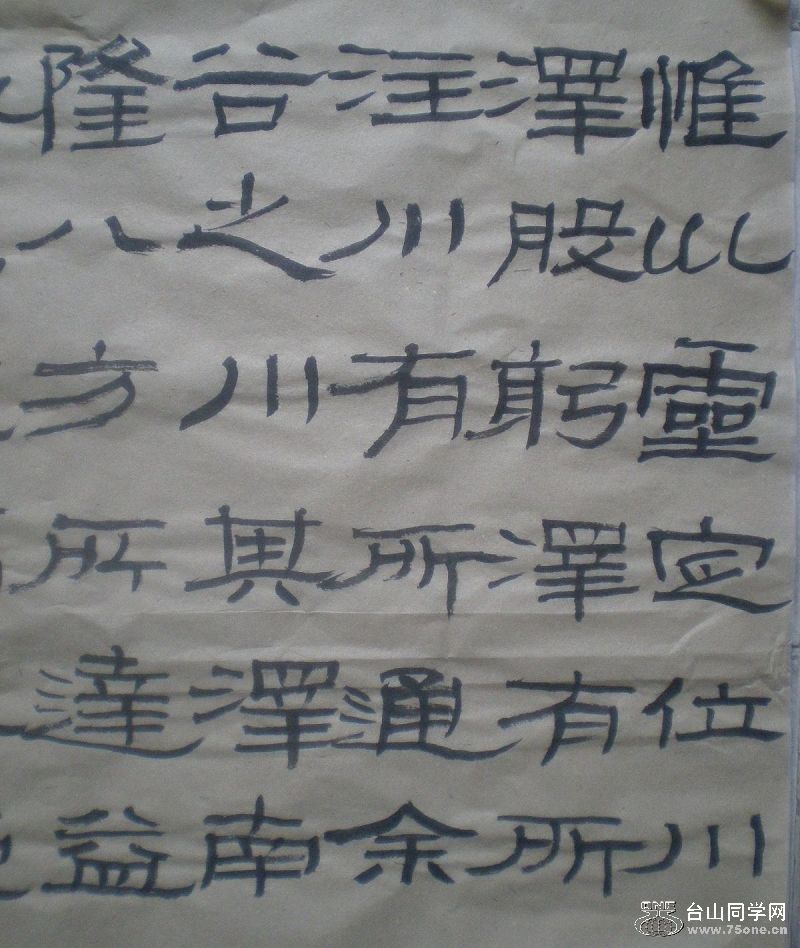 惟巛靈定位川
澤股躬澤有所
注川有所通余
谷之川其澤南
隆八方所達益
台山同学网
www.75one.cn